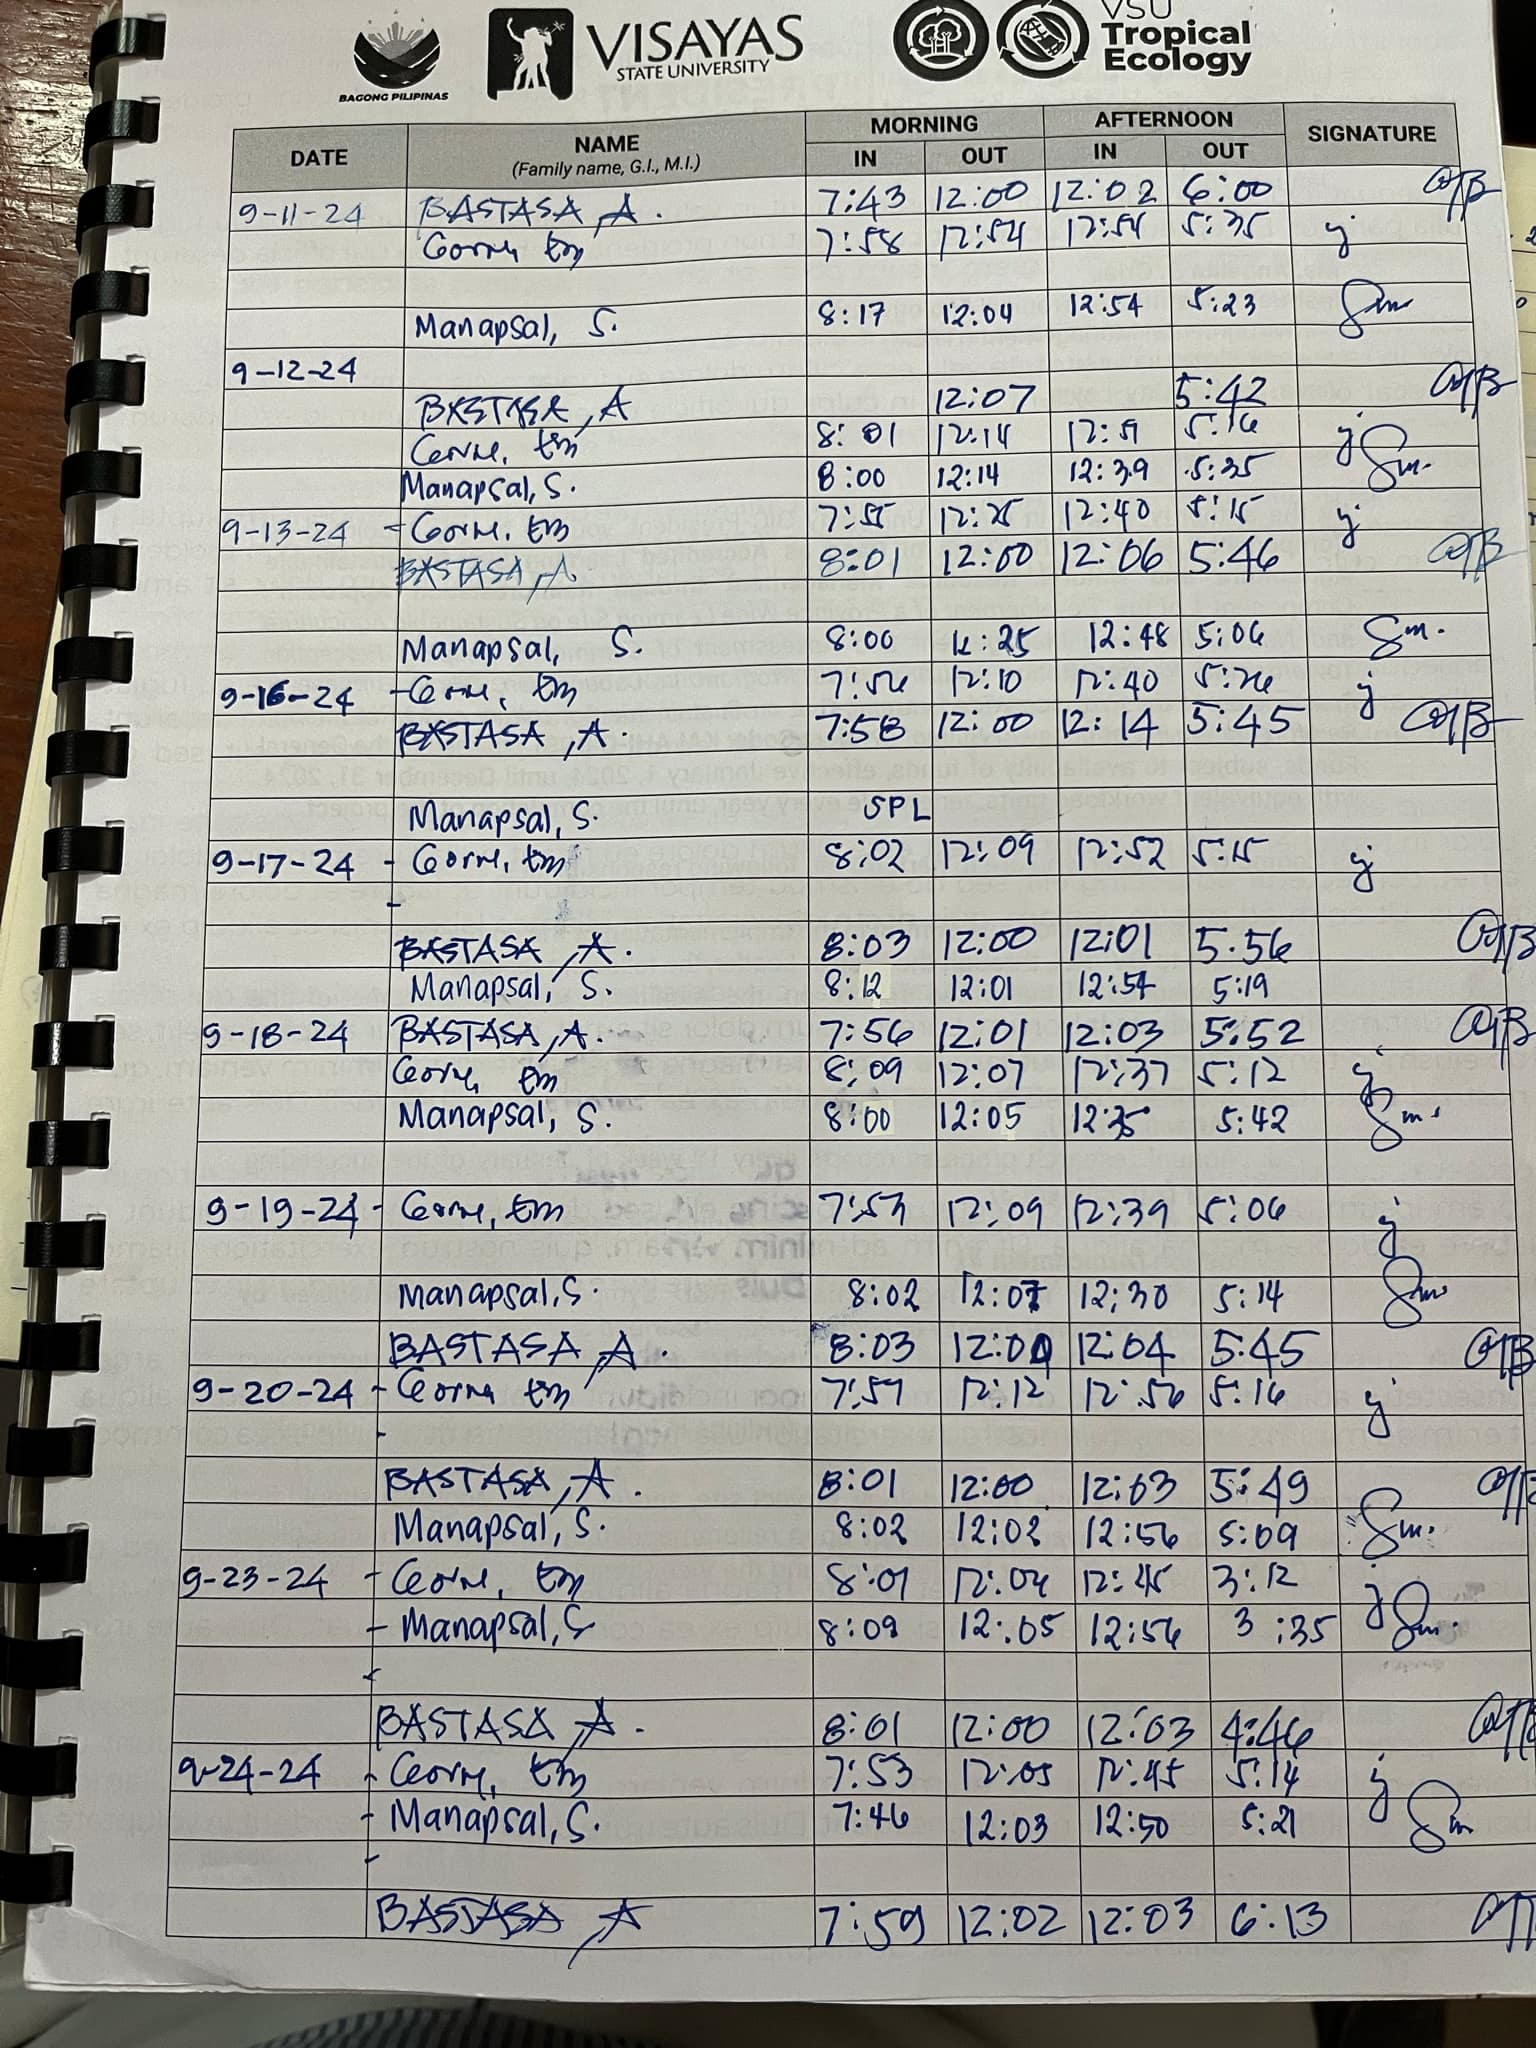 BAGONG PILIPINAS
VISAYAS
STATE UNIVERSITY
VSU
Tropical
Ecology
DATE NAME (Family name, G.I., M.I.) MORNING IN OUT AFTERNOON IN OUT SIGNATURE
9-11-24 BASTASA, A. 7:43 12:00 12:02 6:00
7:58 12:54 12:54 5:35
Manapsal, S. 8:17 12:04 12:54 5:23
9-12-24
BASTASA, A 12:07 5:42
8:01 12:14 5:16
Manapsal, S. 8:00 12:14 12:39 5:35
9-13-24 - 7:55 12:25 12:40 5:15
BASTASA, A 8:01 12:00 12:06 5:46
Manapsal, S. 8:00 12:48 5:06
9-16-24 - 7:56 12:10 12:40 5:26
BASTASA, A. 7:58 12:00 12:14 5:45
Manapsal, S. SPL
9-17-24 - 8:02 12:09 12:52 5:15
-
BASTASA, A. 8:03 12:00 12:01 5:56
Manapsal, S. 8:12 12:01 12:54 5:19
9-18-24 BASTASA, A. 7:56 12:01 12:03 5:52
8:09 12:07 12:37 5:12
Manapsal, S. 8:00 12:05 12:35 5:42
9-19-24 - 12:09 12:39 5:06
Manapsal, S. 8:02 12:07 12:30 5:14
BASTASA, A. 8:03 12:00 12:04 5:45
9-20-24 - 12:12 12:56 5:16
-
BASTASA, A. 8:01 12:00 12:03 5:49
Manapsal, S. 8:02 12:02 12:56 5:09
9-23-24 - 8:01 12:04 12:45 3:12
- Manapsal, S 8:09 12:05 12:56 3:35
-
BASTASA, A. 8:01 12:00 12:03 4:46
9-24-24 - 7:53 12:05 12:45 5:14
- Manapsal, S. 7:46 12:03 12:50 5:21
-
BASTASA, A 7:59 12:02 12:03 6:13